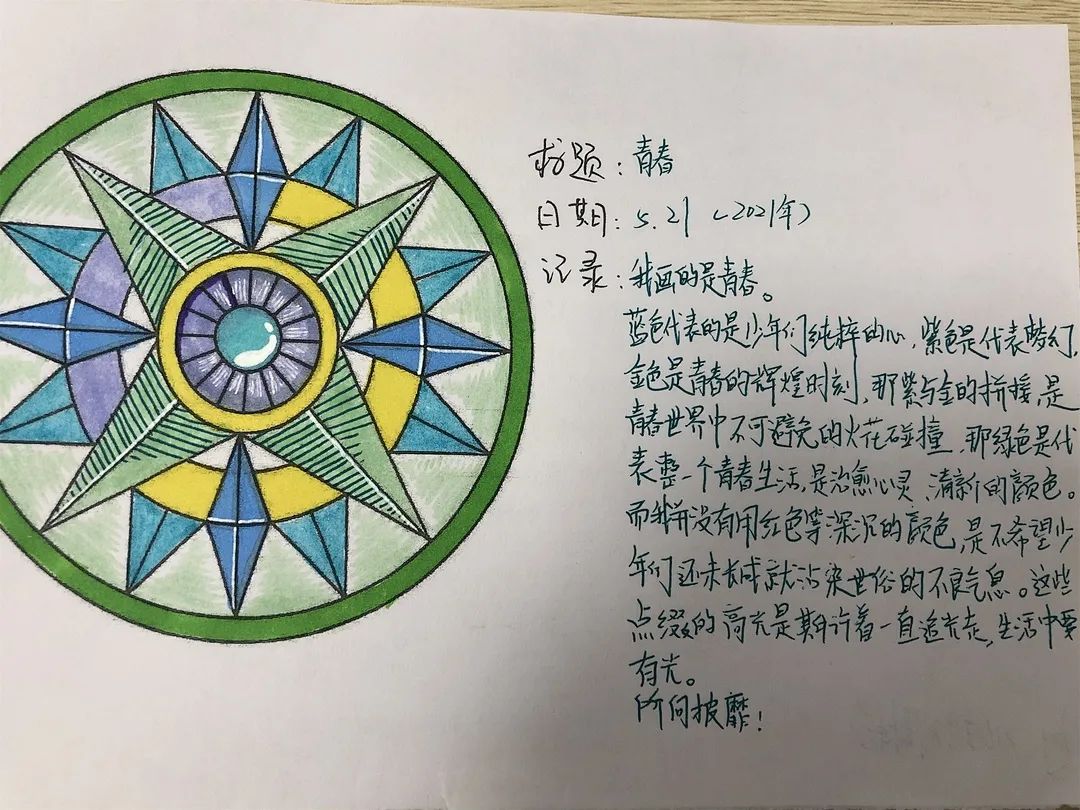 标题：青春
日期：5.21（2021年）
记录：我画的是青春。
蓝色代表的是少年们纯粹的心，紫色是代表梦幻，
金色是青春的辉煌时刻，那紫与金的拼接，是
青春世界中不可避免的火花碰撞，那绿色是代
表整一个青春生活，是治愈心灵，清新的颜色。
而我并没有用红色等深沉的颜色，是不希望少
年们还未长成就沾染世俗的不良气息。这些
点缀的高光是期许着一直追光走，生活中要
有光。
所向披靡！